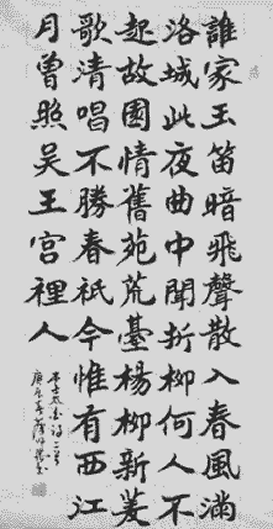 誰家玉笛暗飛聲散入春風滿
洛城此夜曲中聞折柳何人不
起故園情舊苑荒臺楊柳新菱
歌清唱不勝春祇今惟有西江
月曾照吴王宮裡人
李太白詩二首